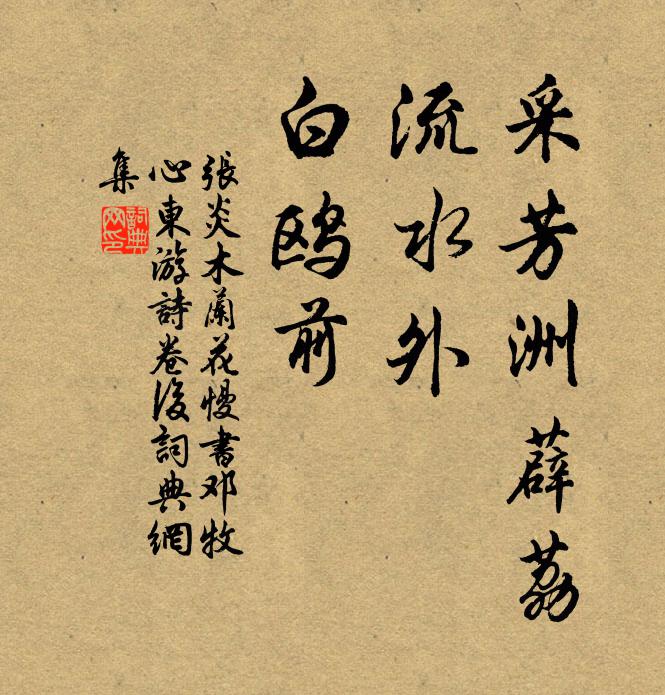 采芳洲薜荔
流水外
白鸥前
張炎木蘭花慢書邓牧
心東游詩卷後詞典網
集
詞典
网印